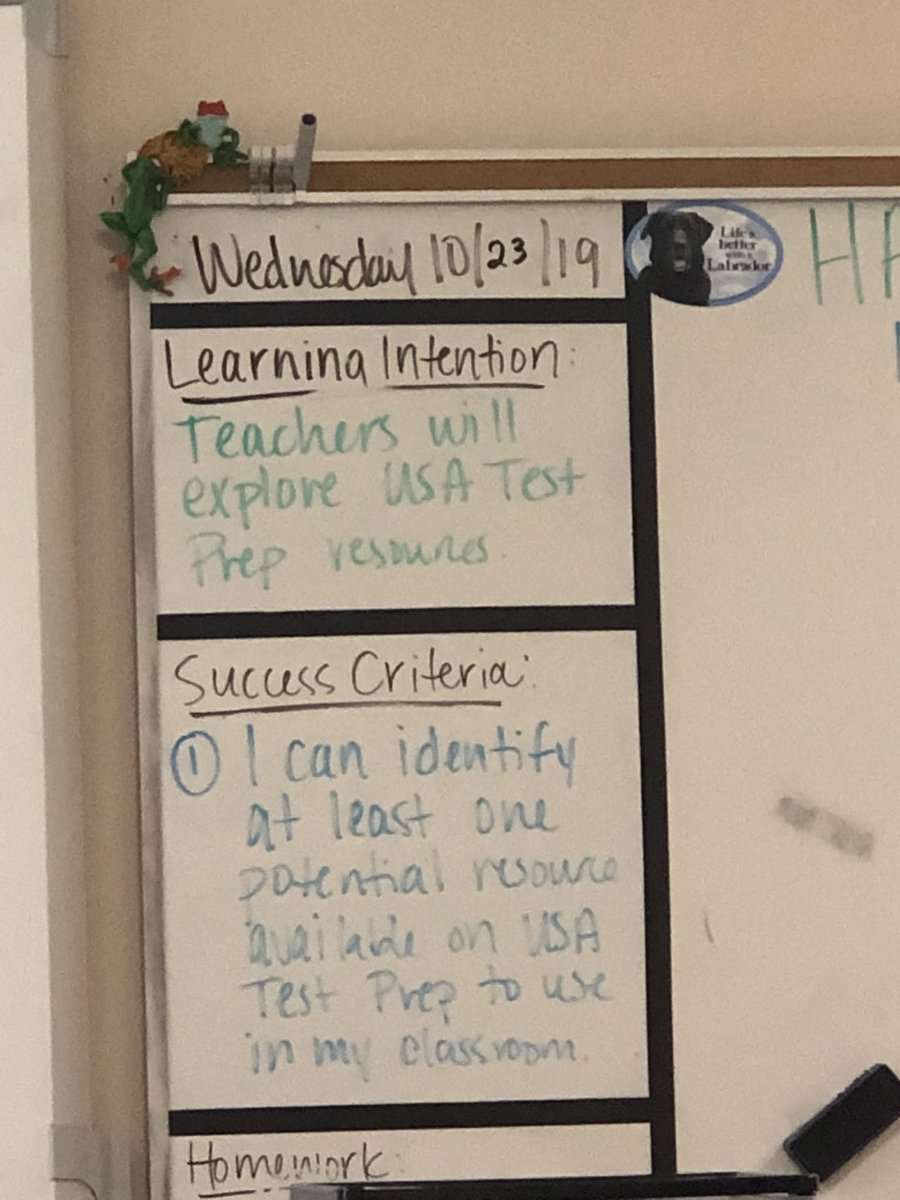 Wednesday 10/23/19
Life's
better
with a
Labrador
HA
Learning Intention:
Teachers will
explore USA Test
Prep resources.
Success Criteria:
① I can identify
at least one
potential resource
available on USA
Test Prep to use
in my classroom.
Homework: